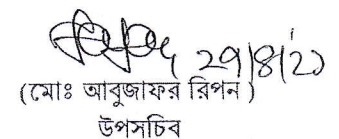 29/8/2১
(মোঃ আবুজাফর রিপন )
উপসচিব